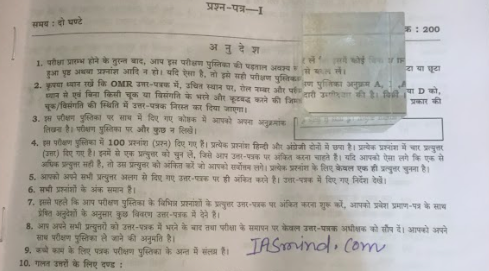 प्रश्न-पत्र—I
समय : दो घण्टे
: 200
अनुदेश
1. परीक्षा प्रारम्भ होने के तुरन्त बाद, आप इस परीक्षण पुस्तिका की पड़ताल अवश्य
हुआ पृष्ठ अथवा प्रश्नांश आदि न हो। यदि ऐसा है, तो इसे सही परीक्षण पुस्तिका से बदल लें।
2. कृपया ध्यान रखें कि OMR उत्तर-पत्रक में, उचित स्थान पर, रोल नम्बर और परीक्षण पुस्तिका अनुक्रम A,
ध्यान से एवं बिना किसी चूक या विसंगति के भरने और कूटबद्ध करने की
चूक/विसंगति की स्थिति में उत्तर-पत्रक निरस्त कर दिया जाएगा।
3. इस परीक्षण पुस्तिका पर साथ में दिए गए कोष्ठक में आपको अपना अनुक्रमांक
लिखना है। परीक्षण पुस्तिका पर और कुछ न लिखें।
4. इस परीक्षण पुस्तिका में 100 प्रश्नांश (प्रश्न) दिए गए हैं। प्रत्येक प्रश्नांश हिन्दी और अंग्रेजी दोनों में छपा है। प्रत्येक प्रश्नांश में चार प्रत्युत्तर
(उत्तर) दिए गए हैं। इनमें से एक प्रत्युत्तर को चुन लें, जिसे आप उत्तर-पत्रक पर अंकित करना चाहते हैं। यदि आपको ऐसा लगे कि एक से
अधिक प्रत्युत्तर सही हैं, तो उस प्रत्युत्तर को अंकित करें जो आपको सर्वोत्तम लगे। प्रत्येक प्रश्नांश के लिए केवल एक ही प्रत्युत्तर चुनना है।
5. आपको अपने सभी प्रत्युत्तर अलग से दिए गए उत्तर-पत्रक पर ही अंकित करने हैं। उत्तर-पत्रक में दिए गए निर्देश देखें।
6. सभी प्रश्नांशों के अंक समान हैं।
7. इससे पहले कि आप परीक्षण पुस्तिका के विभिन्न प्रश्नांशों के प्रत्युत्तर उत्तर-पत्रक पर अंकित करना शुरू करें, आपको प्रवेश प्रमाण-पत्र के साथ
प्रेषित अनुदेशों के अनुसार कुछ विवरण उत्तर-पत्रक में देने हैं।
8. आप अपने सभी प्रत्युत्तरों को उत्तर-पत्रक में भरने के बाद तथा परीक्षा के समापन पर केवल उत्तर-पत्रक अधीक्षक को सौंप दें। आपको अपने
साथ परीक्षण पुस्तिका ले जाने की अनुमति है।
9. कच्चे काम के लिए पत्रक परीक्षण पुस्तिका के अन्त में संलग्न हैं।
IASmind.com
10. गलत उत्तरों के लिए दण्ड :